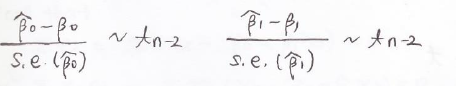 (β̂0 − β0) / s.e.(β̂0) ~ tn-2    (β̂1 − β1) / s.e.(β̂1) ~ tn-2